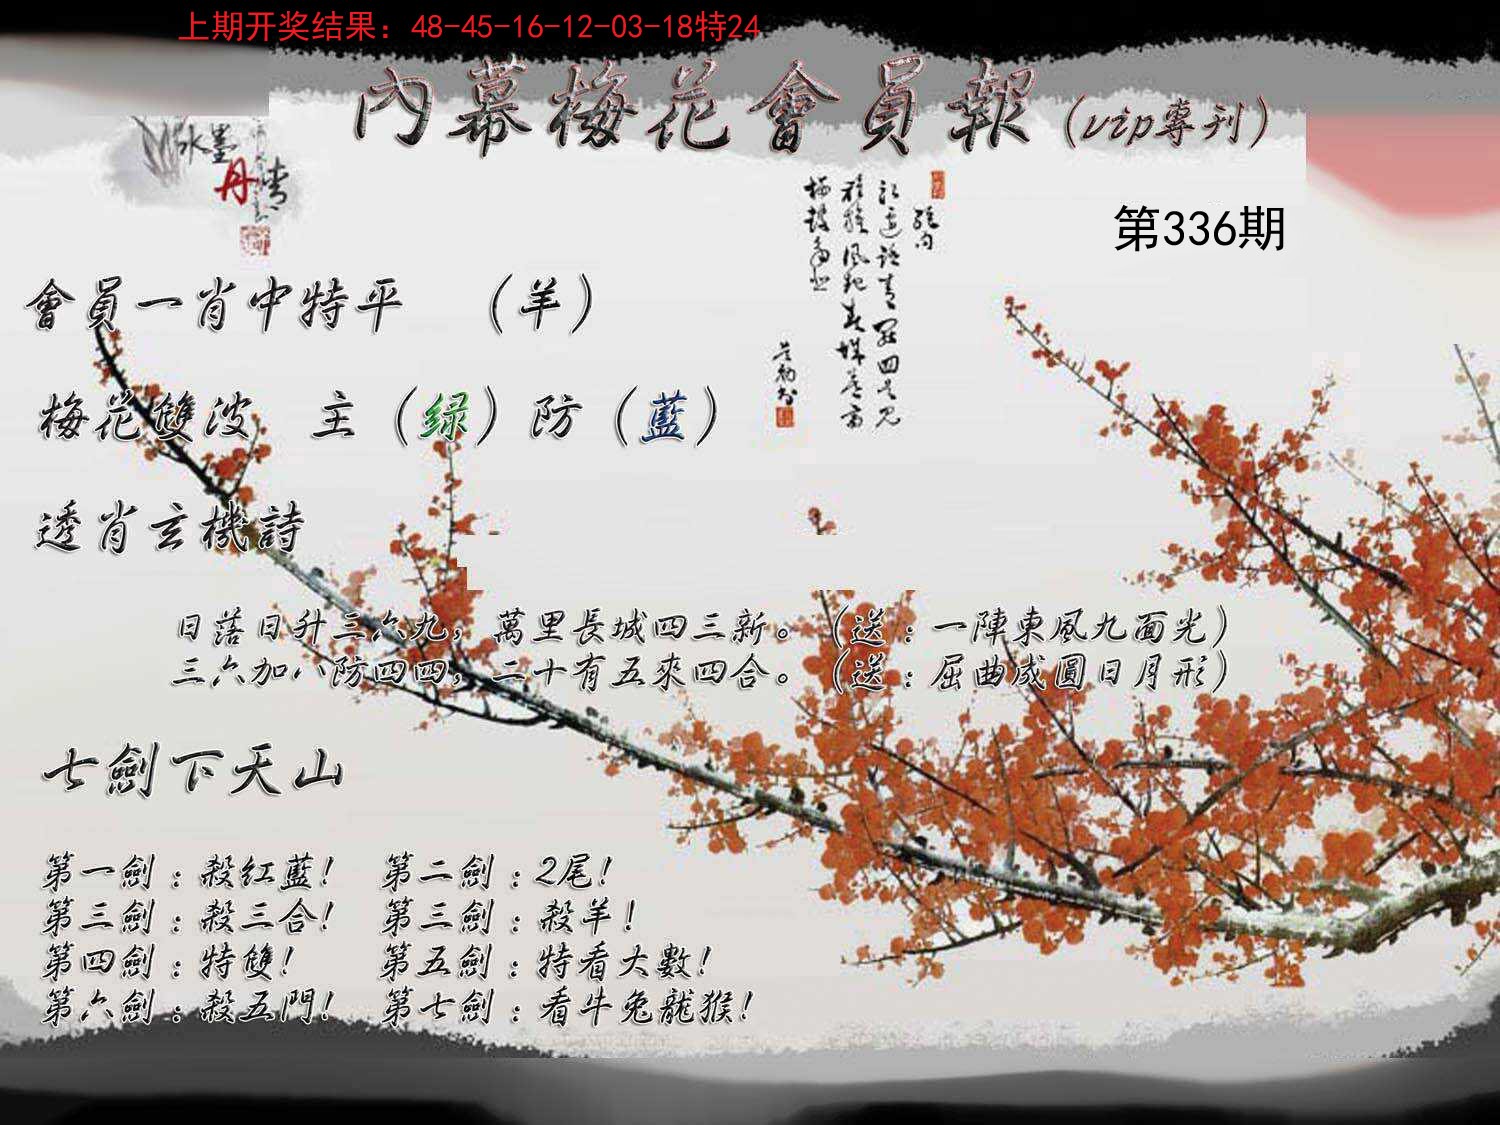 上期开奖结果：48-45-16-12-03-18特24
內幕梅花會員報（vip專刊）
水墨
丹青
第336期
會員一肖中特平　（羊）
梅花雙波　主（绿）防（藍）
透肖玄機詩
日落日升三六九，萬里長城四三新。（送：一陣東風九面光）
三六加八防四四，二十有五來四合。（送：屈曲成圓日月形）
七劍下天山
第一劍：殺紅藍!　第二劍：2尾!
第三劍：殺三合!　第三劍：殺羊!
第四劍：特雙!　第五劍：特看大數!
第六劍：殺五門!　第七劍：看牛兔龍猴!